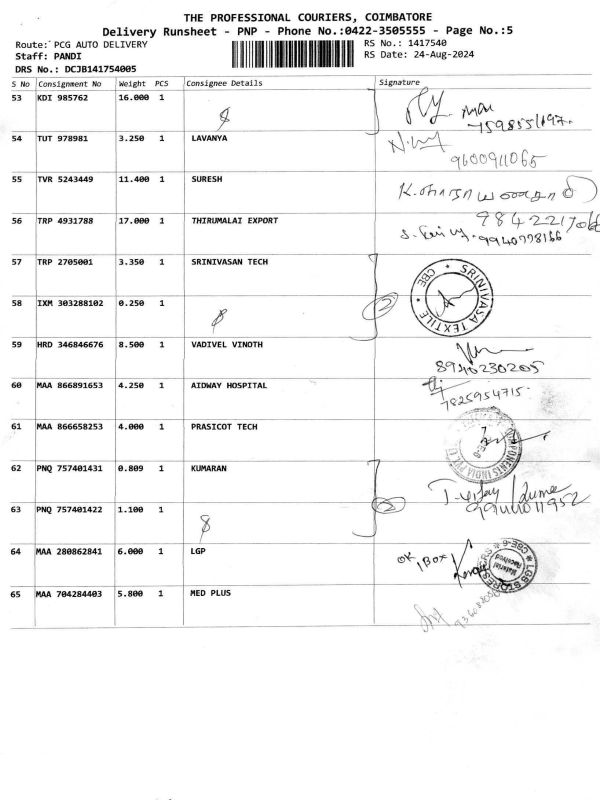 THE PROFESSIONAL COURIERS, COIMBATORE
Delivery Runsheet - PNP - Phone No.:0422-3505555 - Page No.:5
Route: PCG AUTO DELIVERY RS No.: 1417540
Staff: PANDI RS Date: 24-Aug-2024
DRS No.: DCJB141754005
S No Consignment No Weight PCS Consignee Details Signature
53 KDI 985762 16.000 1
54 TUT 978981 3.250 1 LAVANYA
9600911065
55 TVR 5243449 11.400 1 SURESH
56 TRP 4931788 17.000 1 THIRUMALAI EXPORT
9940778166
57 TRP 2705001 3.350 1 SRINIVASAN TECH
2
SRINIVASA TEXTILE * CBE *
58 IXM 303288102 0.250 1
59 HRD 346846676 8.500 1 VADIVEL VINOTH
8940230205
60 MAA 866891653 4.250 1 AIDWAY HOSPITAL
7825954715
61 MAA 866658253 4.000 1 PRASICOT TECH
62 PNQ 757401431 0.809 1 KUMARAN
2
63 PNQ 757401422 1.100 1
64 MAA 280862841 6.000 1 LGP
OK
1 BOX
Material Received
65 MAA 704284403 5.800 1 MED PLUS